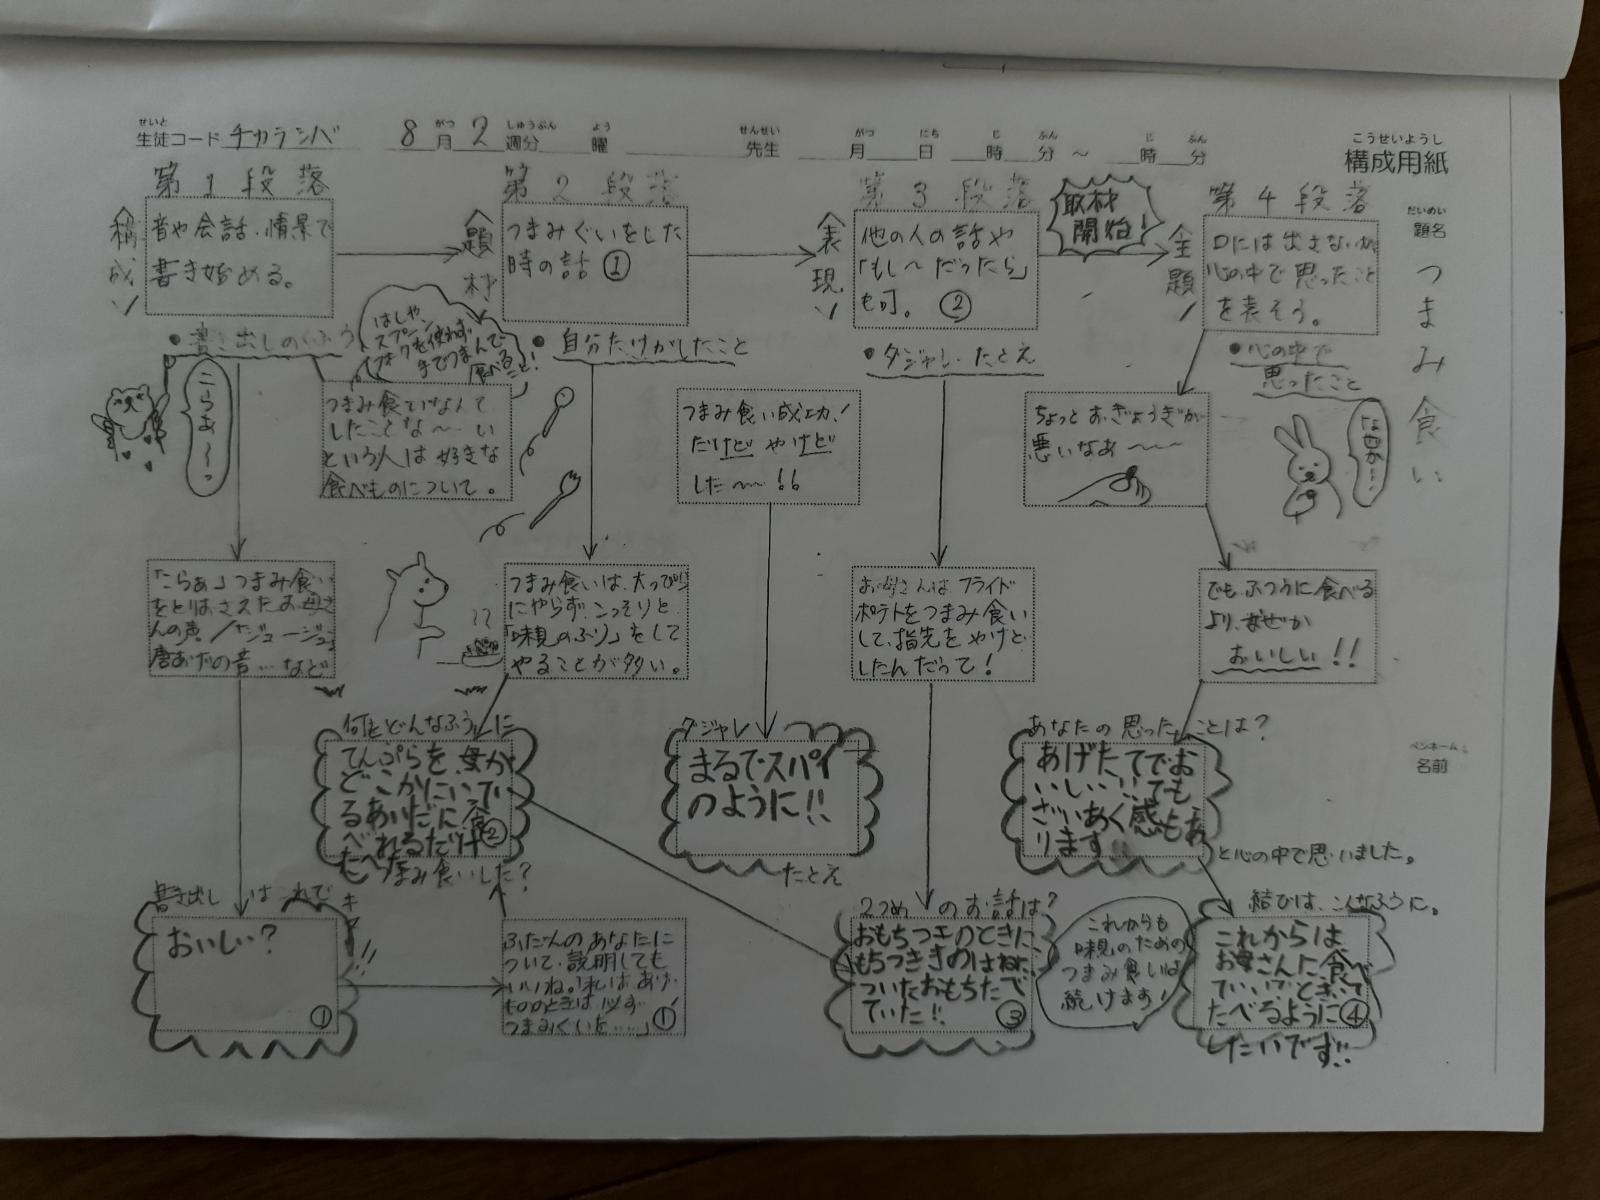 せいと
生徒コード チカラシバ 8月2週分 曜 先生 月 日 時 分 ～ 時 分
がつ しゅうぶん よう せんせい がつ にち じ ふん じ ふん
こうせいようし
構成用紙
だいめい
題名
つまみ食い
ペンネーム
名前
第1段落
構成
音や会話、情景で
書き始める。
・書き出しのくふう
こらぁ～っ
つまみ食いなんて
したことな～い
という人は好きな
食べものについて。
「こらぁ」つまみ食い
をとりおさえたお母さ
んの声/「ジュージュー」
唐あげの音…など
書き出しはこれで
キマ
おいしい?
①
第2段落
題材
つまみぐいをした
時の話①
はしや
スプーン、
フォークを使わず、
手でつまんで
食べること!
・自分だけがしたこと
つまみ食いは、大っぴら
にやらず、こっそりと、
「味見のふり」をして
やることが多い。
何をどんなふうに
てんぷらを、母が
どこかにいてい
るあいだに食
べれるだけ②
たべ
つまみ食いした?
ふだんのあなたに
ついて、説明しても
いいね。「私はあげ
もののときは必ず
つまみぐいを……」
①
第3段落
表現
他の人の話や
「もし～だったら」
も可。 ②
・ダジャレ・たとえ
つまみ食い成功!
だけどやけど
した～～!!
ダジャレ
まるでスパイ
のように!!
たとえ
お母さんはフライド
ポテトをつまみ食い
して、指先をやけど
したんだって!
2つめのお話は?
おもちつ王のときに
もちつききのはねに
ついたおもちたべ
ていた!!
③
取材
開始!
第4段落
主題
口には出さないが、
心の中で思ったこと
を表そう。
・心の中で
思ったこと
ちょっとおぎょうぎが
悪いなあ～～～
なぜか…
でも、ふつうに食べる
より、なぜか
おいしい!!
あなたの思ったことは?
あげたてでお
いしい!!でも
ざいあく感もあ
ります!!
と心の中で思いました。
結びは、こんなふうに。
これからも
味見のための
つまみ食いは
続けます!
これからは
お母さんに食べ
ていい?ときいて
たべるように④
したいです!!